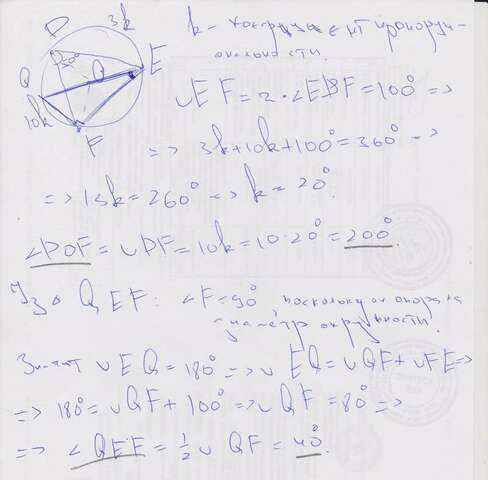 D 3k
k - коэффициент пропорци-
ональности.
E
50°
Q O
10k
F
∪EF = 2·∠EDF = 100° =>
=> 3k+10k+100° = 360° =>
=> 13k = 260° => k = 20°.
∠DOF = ∪DF = 10k = 10·20° = 200°.
Из △ QEF: ∠F = 90°, поскольку он опора на
диаметр окружности.
Значит ∪EQ = 180° => ∪EQ = ∪QF + ∪FE =>
=> 180° = ∪QF + 100° => ∪QF = 80° =>
=> ∠QEF = 1/2 ∪ QF = 40°.